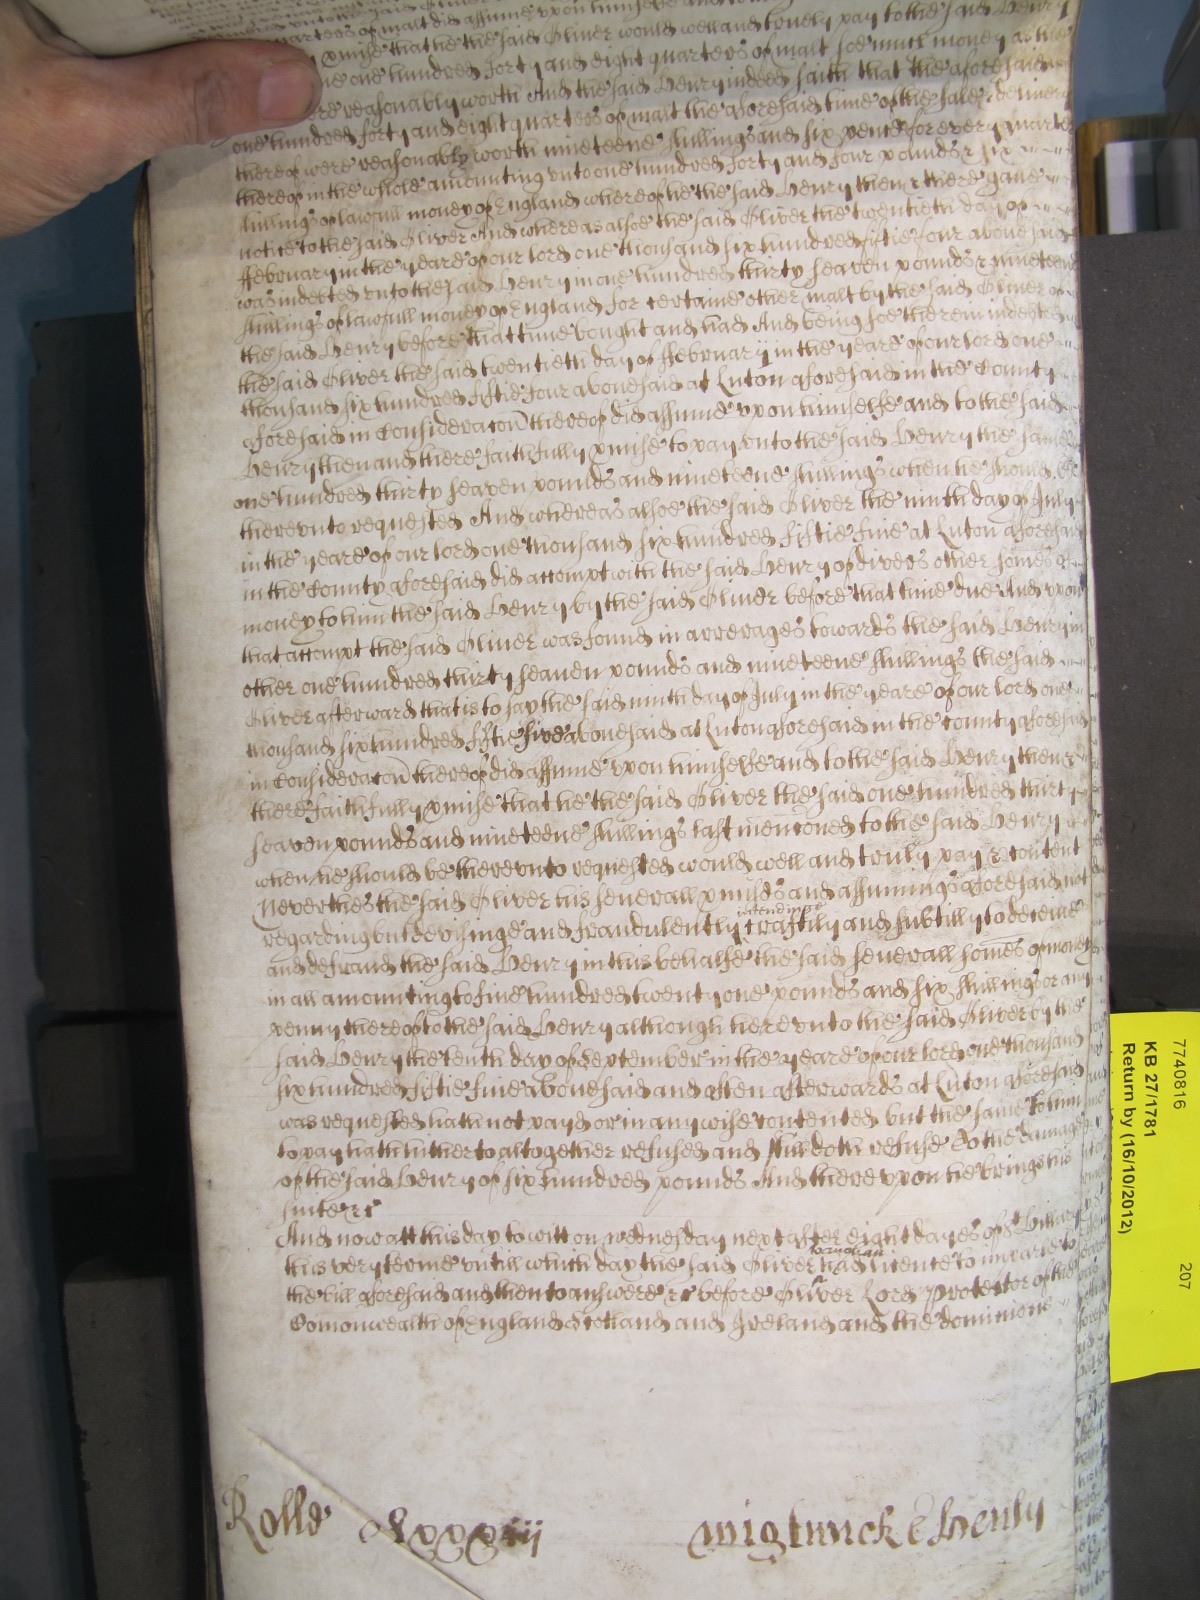 quarters of malt did assume upon himselfe and
pmise that he the said Oliver would well and truely pay to the said Henry
one hundred forty and eight quarters of malt soe much money as the
were reasonably worth And the said Henry indeed saith that the aforesaid
one hundred forty and eight quarters of malt the aforesaid time of the sale & delivery
thereof were reasonably worth nineteene shillings and six pence for every quarter
thereof in the whole amounting unto one hundred forty and four pounds & six
shillings of lawfull money of England whereof he the said Henry then & there gave
notice to the said Oliver And whereas alsoe the said Oliver the twentieth day of
ffebruary in the yeare of our lord one thousand six hundred fiftie four abovesaid
was indebted unto the said Henry in one hundred thirty seaven pounds & nineteene
shillings of lawfull money of England for certaine other malt by the said Oliver of
the said Henry before that time bought and had And being soe therein indebted
the said Oliver the said twentieth day of ffebruary in the yeare of our lord one
thousand six hundred fiftie four abovesaid at Luton aforesaid in the County
aforesaid in Consideracon thereof did assume upon himselfe and to the said
Henry then and there faithfully pmise to pay unto the said Henry the same
one hundred thirty seaven pounds and nineteene shillings when he should be
thereunto requested And whereas alsoe the said Oliver the ninth day of July
in the yeare of our lord one thousand six hundred fiftie five at Luton aforesaid
in the County aforesaid did accompt with the said Henry of divers other somes of
money to him the said Henry by the said Oliver before that time due And upon
that accompt the said Oliver was found in arrerages towards the said Henry in
other one hundred thirty seaven pounds and nineteene shillings the said
Oliver afterward that is to say the said ninth day of July in the yeare of our lord one
thousand six hundred fiftie five abovesaid at Luton aforesaid in the county aforesaid
in Consideracon thereof did assume upon himselfe and to the said Henry then &
there faithfully pmise that he the said Oliver the said one hundred thirty
seaven pounds and nineteene shillings last mencioned to the said Henry
when he should be thereunto requested would well and truly pay & content
Neverthes the said Oliver his severall pmises and assumings aforesaid not
regarding but devisinge and fraudulently intendinge craftily and subtilly to deceive
and defraud the said Henry in this behalfe the said severall somes of money
in all amounting to five hundred twenty one pounds and six shillings or any
penny thereof to the said Henry although hereunto the said Oliver by the
said Henry the tenth day of September in the yeare of our lord one thousand
six hundred fiftie five abovesaid and often afterwards at Luton aforesaid
was requested hath not payd or in any wise contented but the same to him
to pay hath hitherto altogether refused and still doth refuse To the damage
of the said Henry of six hundred pounds And thereupon he brings his
suite &c
And now att this day to witt on wednesday next after eight dayes of St Hillary
this very terme untill which day the said Oliver had licence to imparle to
the bill aforesaid and then to answere &c before Oliver Lord Protector of the
Comonwealth of England Scotland and Ireland and the dominions
Rolle
Wightwick & Henly
7740816
KB 27/1781
Return by (16/10/2012)
207